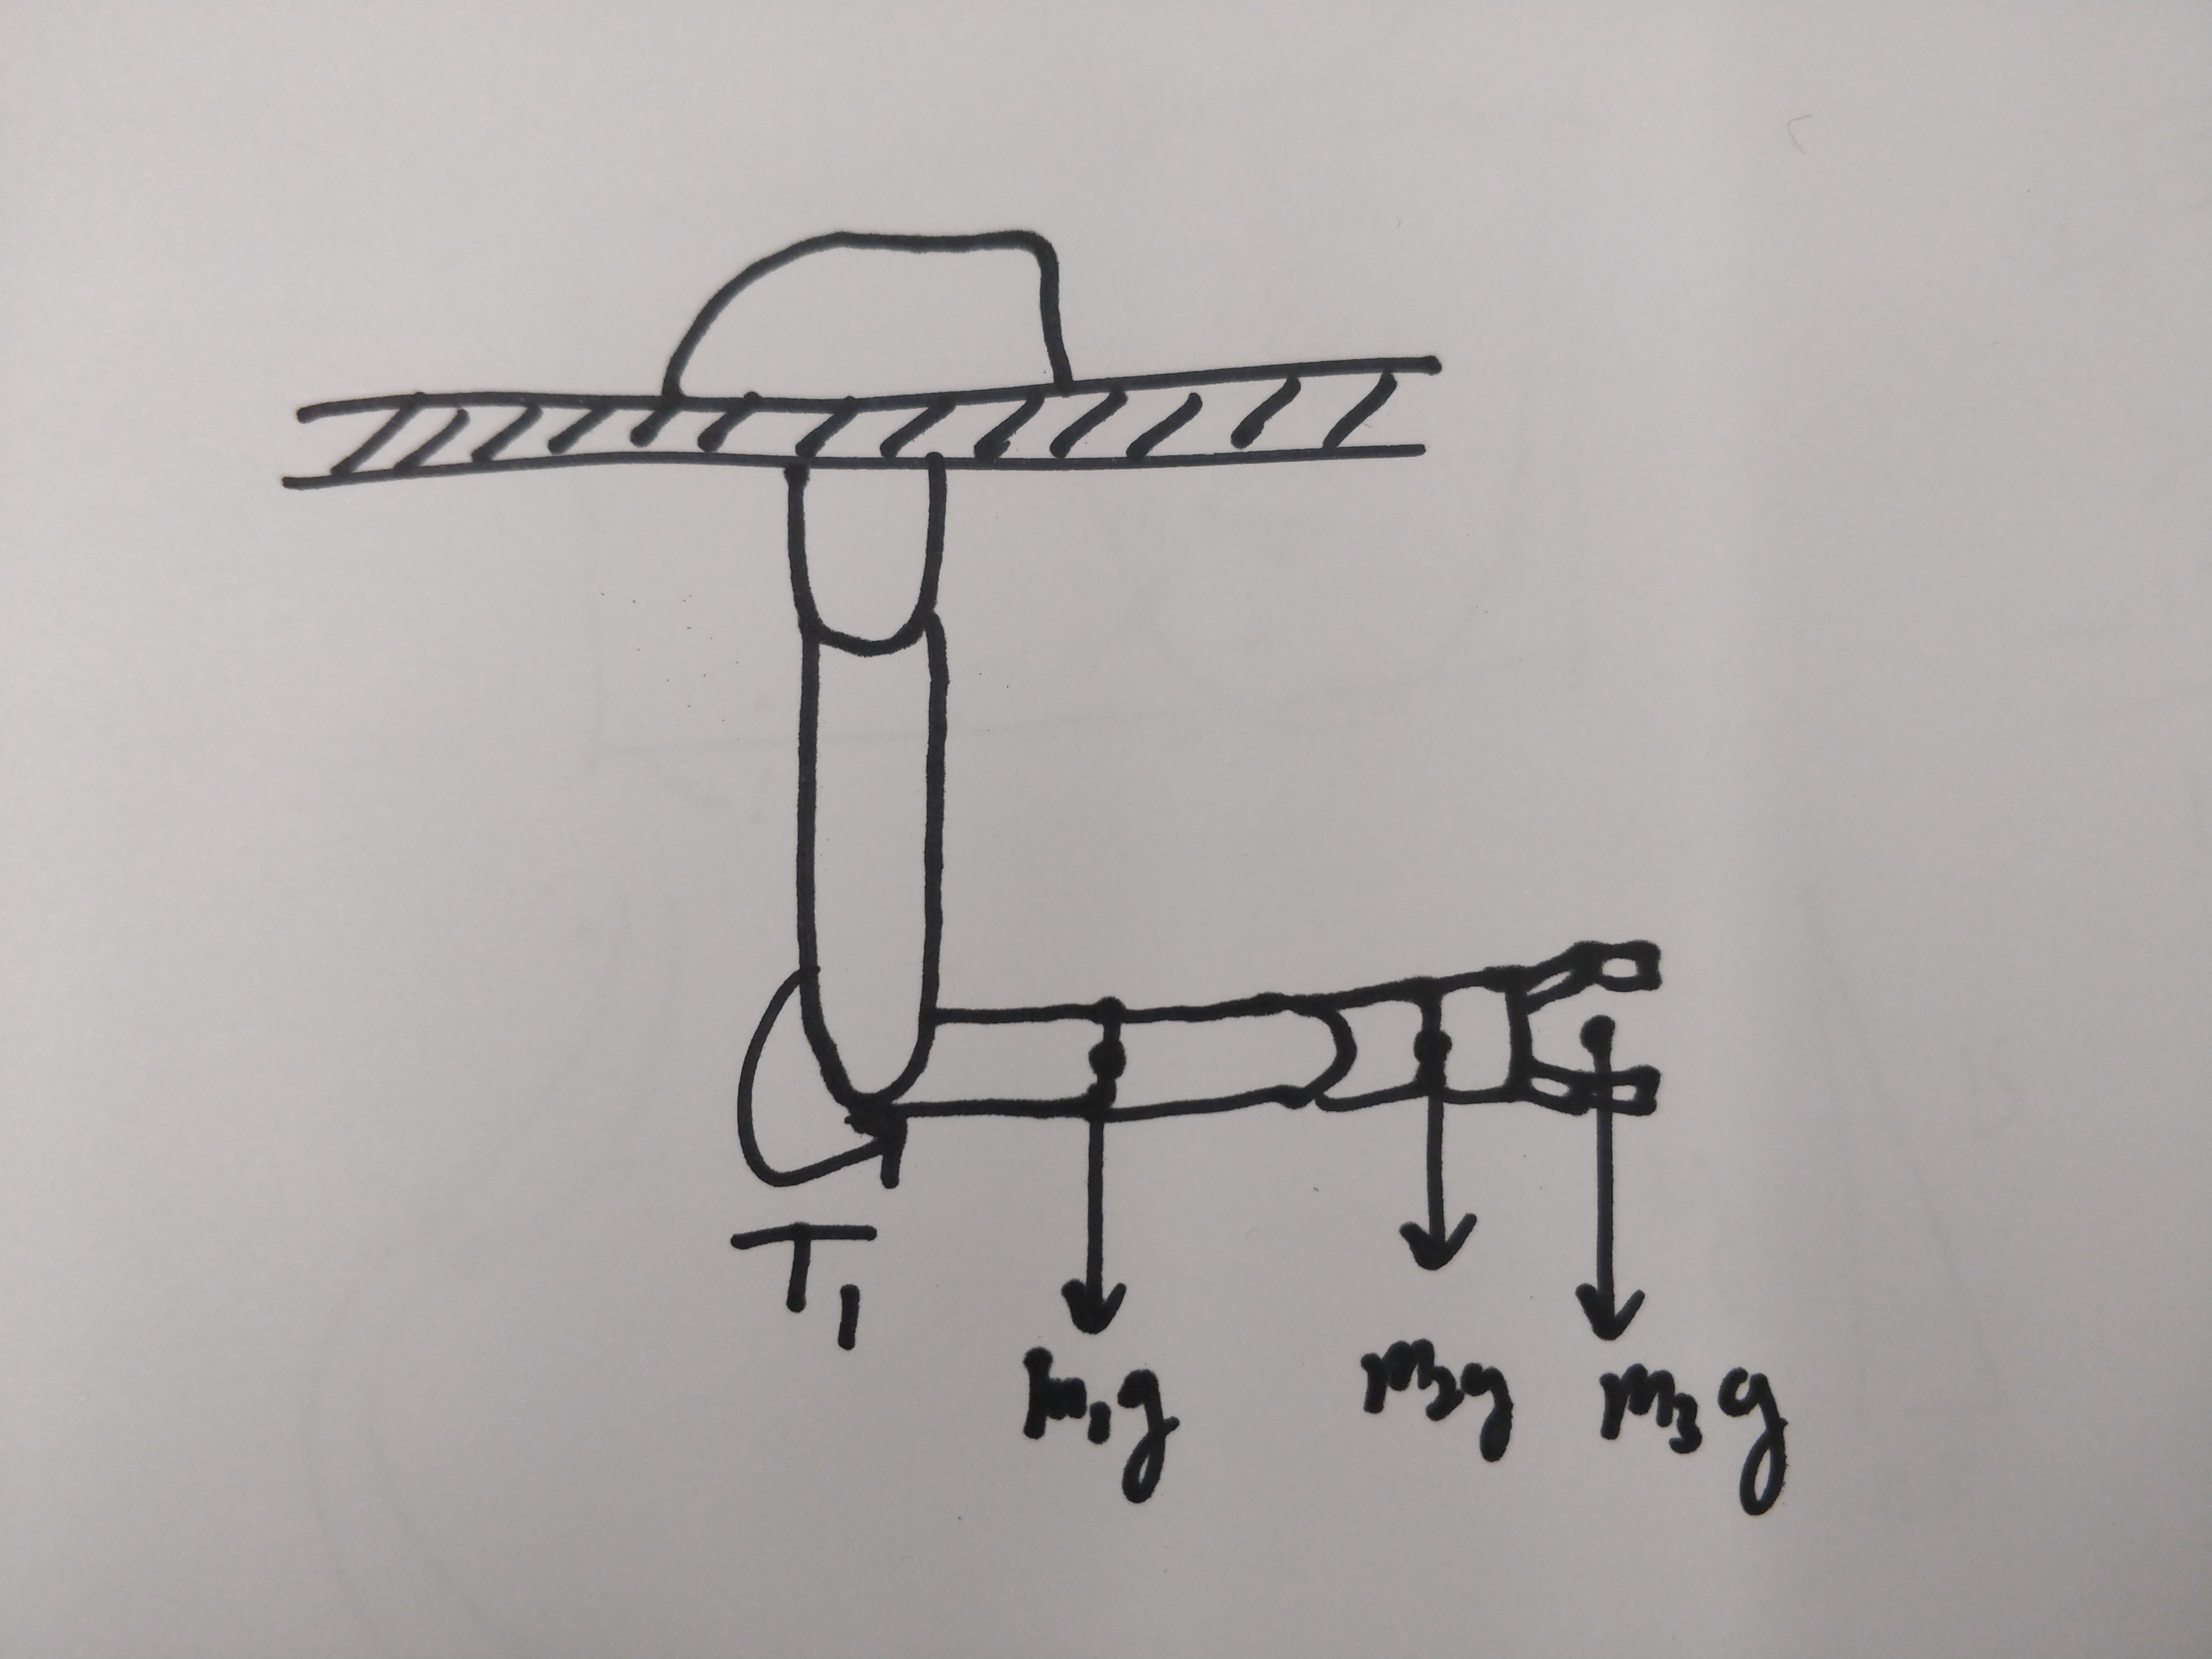 T₁
m₁g m₂g m₃g